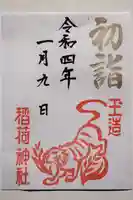 初詣
令和四年
一月九日
玉造
稲荷神社